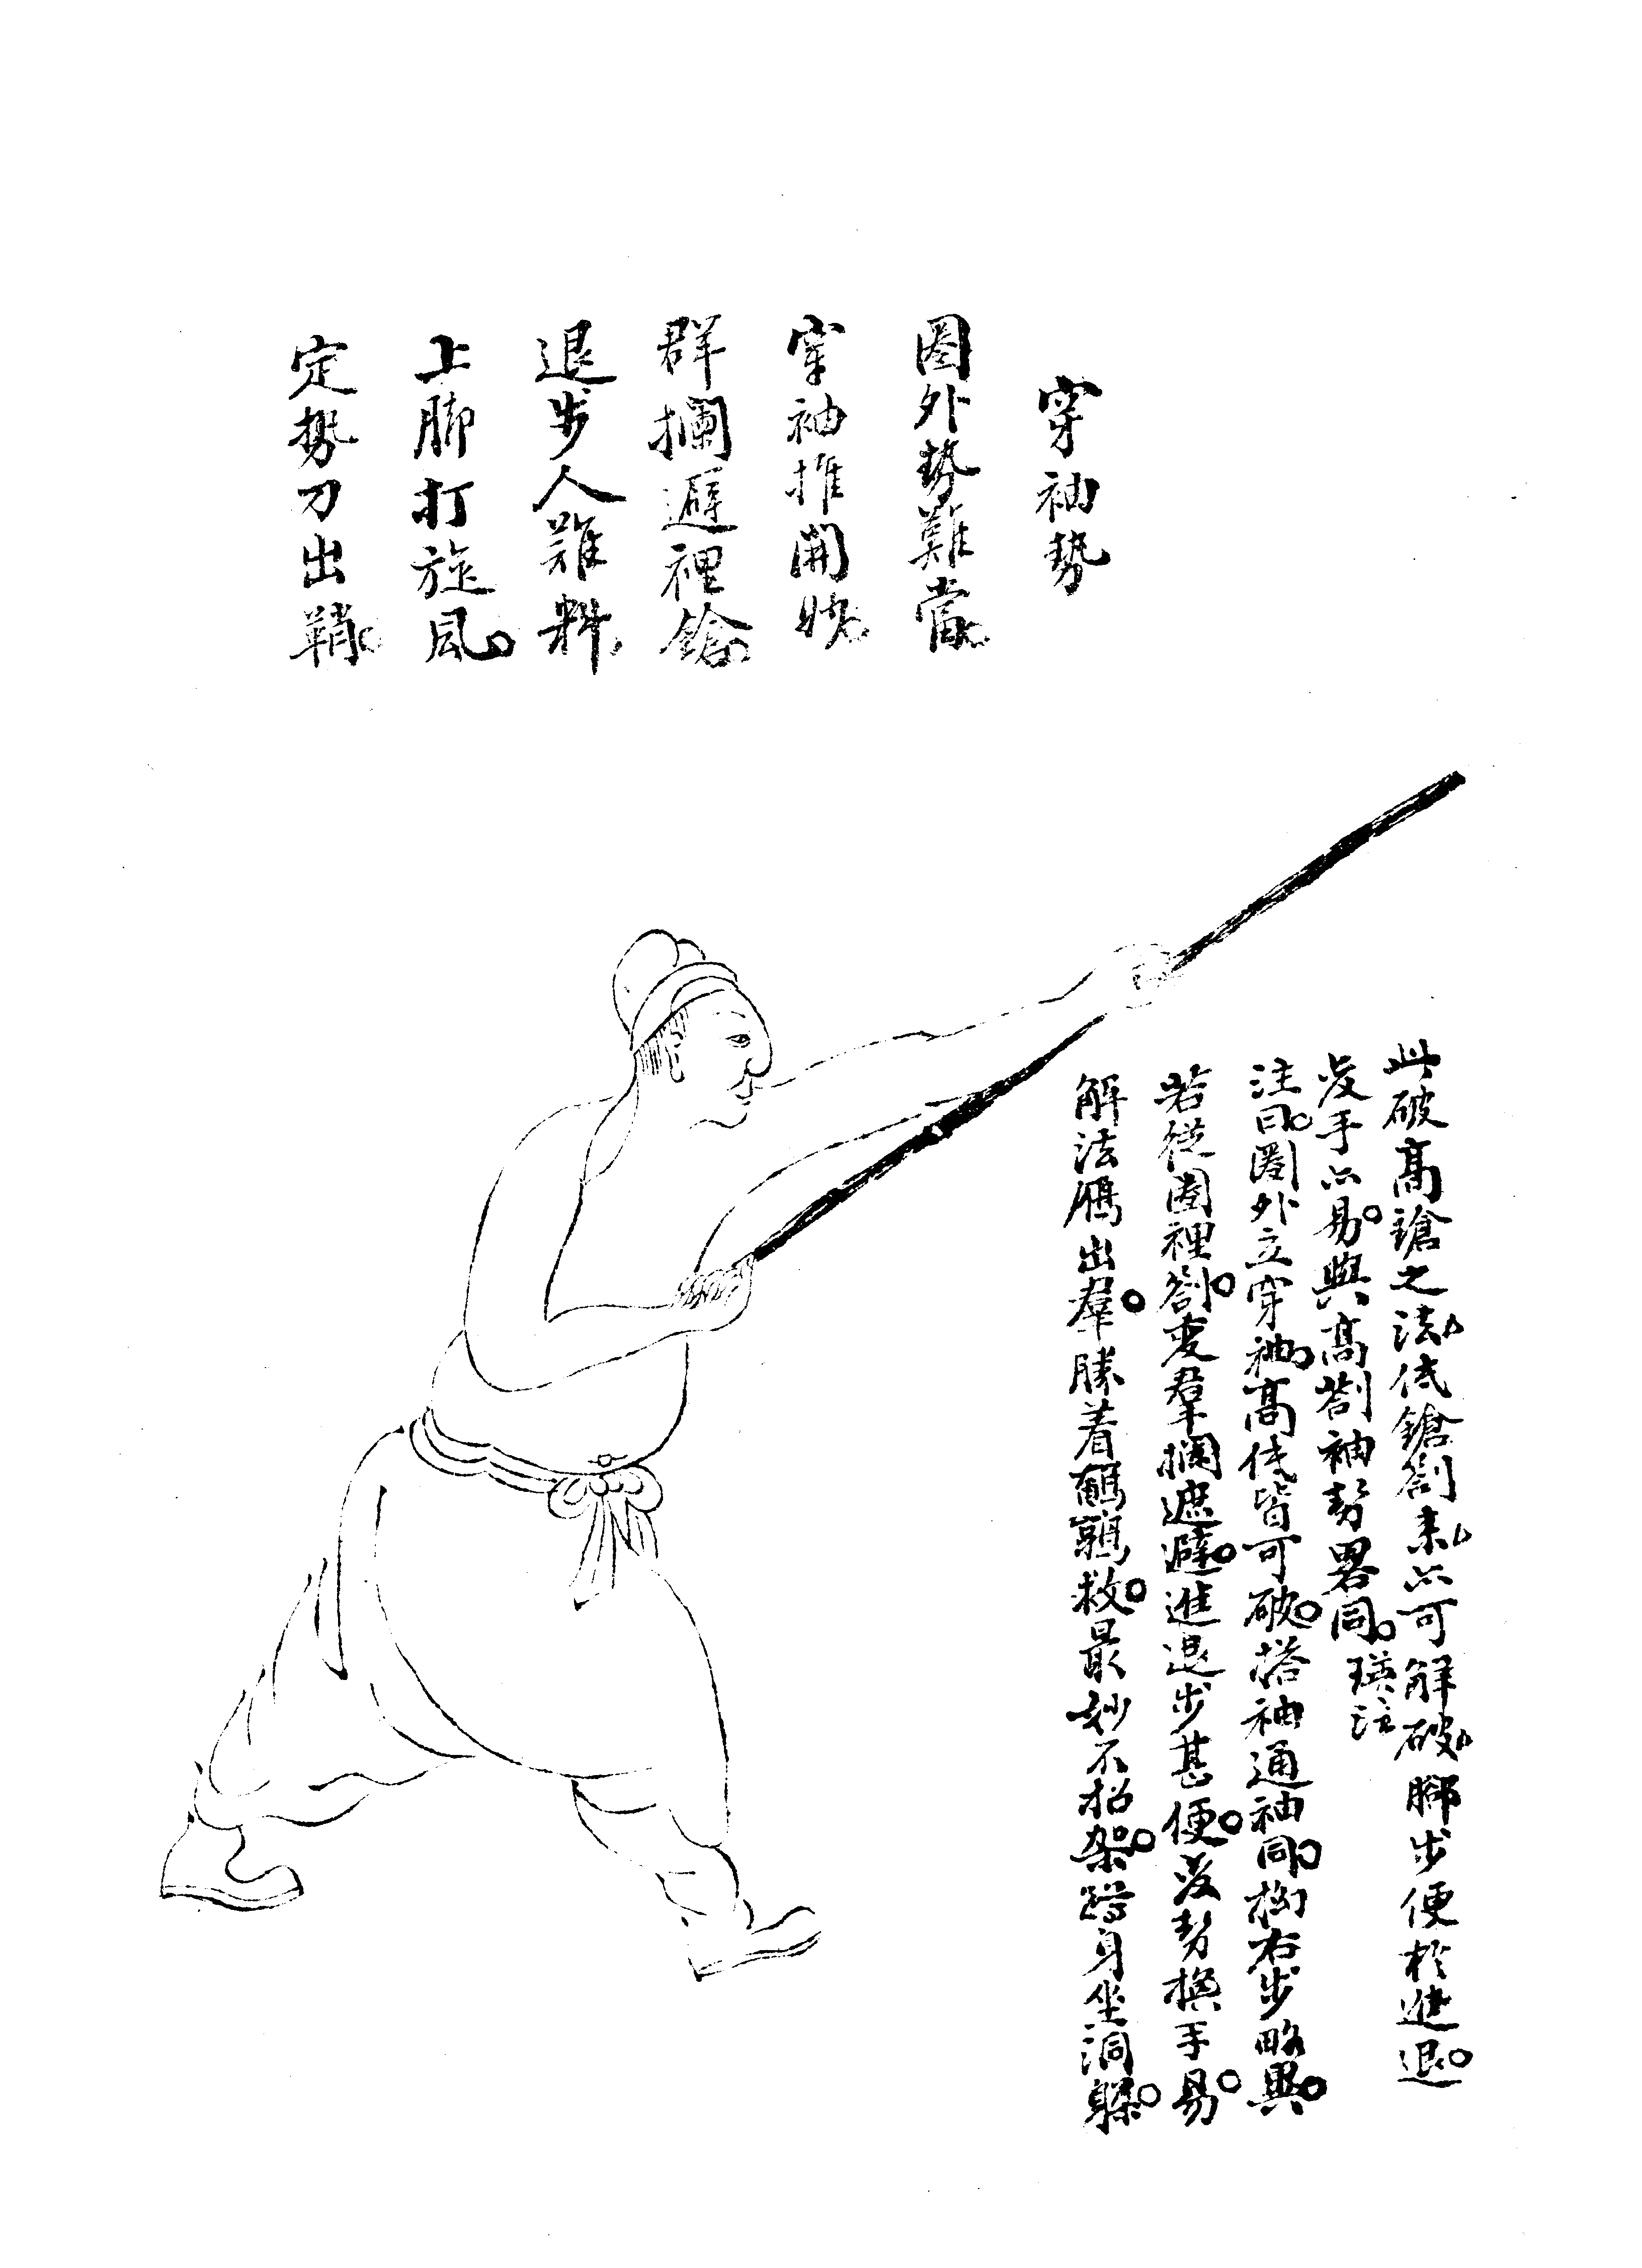 穿袖勢
圈外勢難當
穿袖推開妙
群攔避裡鎗
退步人難料
上脚打旋風
定勢刀出鞘
此破高鎗之法低鎗劄来亦可解破腳步便於進退
发手亦易與高劄袖勢畧同瑛注
注曰圈外立穿袖高低皆可破搭袖通袖同抝右步略異
若從圈裡劄变羣攔遮避進退步甚便发勢换手易
解法鴈出羣勝着鷂鶉救最妙不招架蹲身坐洞躲